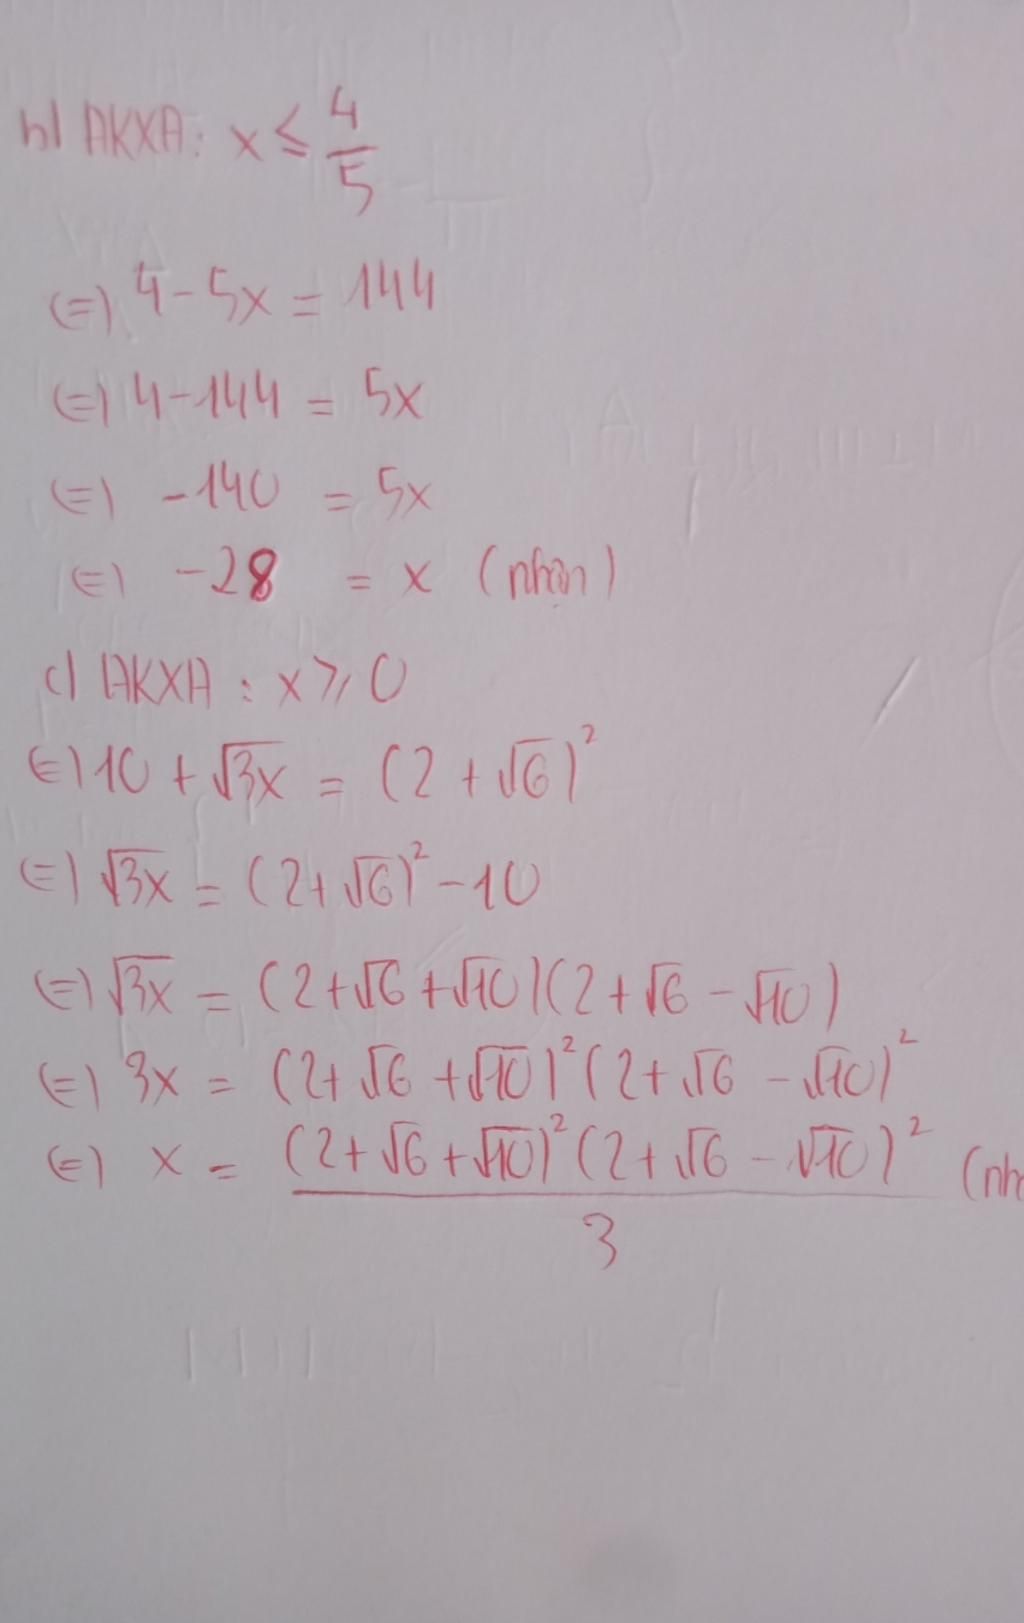 b) ĐKXĐ: x ≤ 4/5
(=) 4 - 5x = 144
(=) 4 - 144 = 5x
(=) -140 = 5x
(=) -28 = x (nhận)
c) ĐKXĐ: x ≥ 0
(=) 10 + √3x = (2 + √6)²
(=) √3x = (2 + √6)² - 10
(=) √3x = (2 + √6 + √10)(2 + √6 - √10)
(=) 3x = (2 + √6 + √10)² (2 + √6 - √10)²
(=) x = (2 + √6 + √10)² (2 + √6 - √10)² / 3 (nh